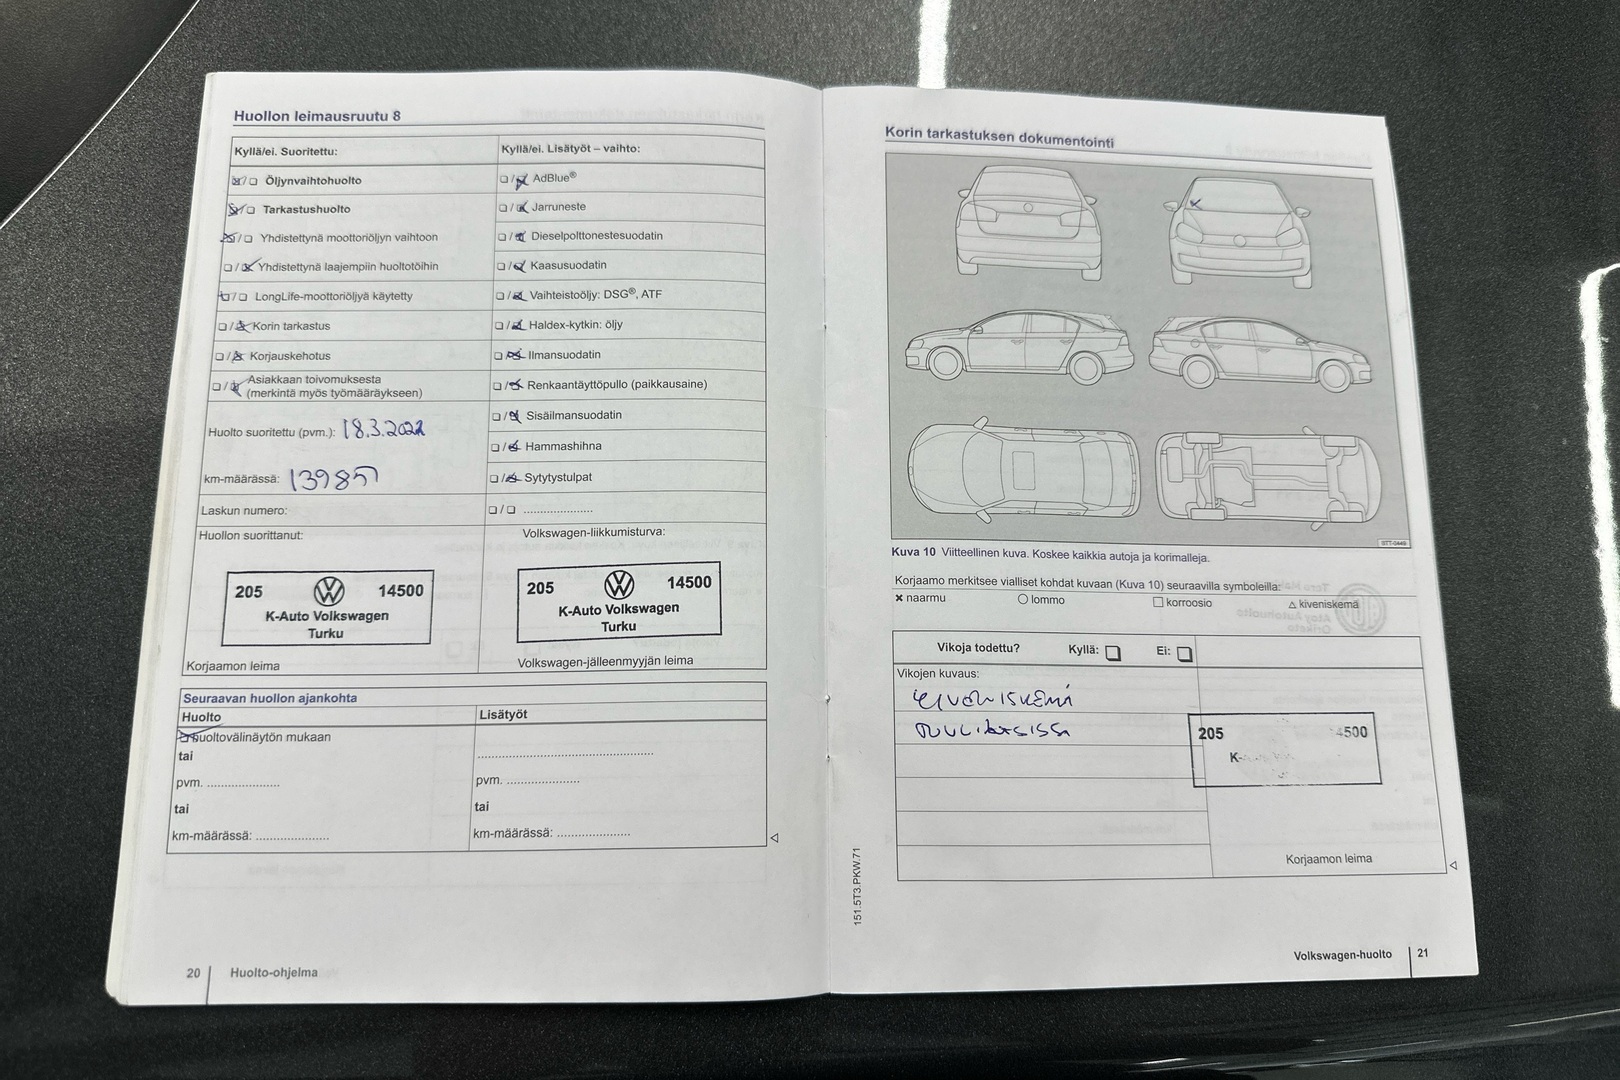 Huollon leimausruutu 8
Kyllä/ei. Suoritettu:
Öljynvaihtohuolto
Tarkastushuolto
Yhdistettynä moottoriöljyn vaihtoon
Yhdistettynä laajempiin huoltotöihin
LongLife-moottoriöljyä käytetty
Korin tarkastus
Korjauskehotus
Asiakkaan toivomuksesta
(merkintä myös työmääräykseen)
Huolto suoritettu (pvm.): 18.3.2022
km-määrässä: 139857
Laskun numero:
Huollon suorittanut:
205 14500
K-Auto Volkswagen
Turku
Korjaamon leima
Kyllä/ei. Lisätyöt – vaihto:
AdBlue®
Jarruneste
Dieselpolttonestesuodatin
Kaasusuodatin
Vaihteistoöljy: DSG®, ATF
Haldex-kytkin: öljy
Ilmansuodatin
Renkaantäyttöpullo (paikkausaine)
Sisäilmansuodatin
Hammashihna
Sytytystulpat
Volkswagen-liikkumisturva:
205 14500
K-Auto Volkswagen
Turku
Volkswagen-jälleenmyyjän leima
Seuraavan huollon ajankohta
Huolto
huoltovälinäytön mukaan
tai
pvm.
tai
km-määrässä:
Lisätyöt
pvm.
tai
km-määrässä:
20 Huolto-ohjelma
Korin tarkastuksen dokumentointi
Kuva 10 Viitteellinen kuva. Koskee kaikkia autoja ja korimalleja.
Korjaamo merkitsee vialliset kohdat kuvaan (Kuva 10) seuraavilla symboleilla:
naarmu lommo korroosio kiveniskemä
Vikoja todettu? Kyllä: Ei:
Vikojen kuvaus:
Kiveniskemä
tuulilasissa
205 4500
K-
Korjaamon leima
151.5T3.PKW.71
Volkswagen-huolto 21